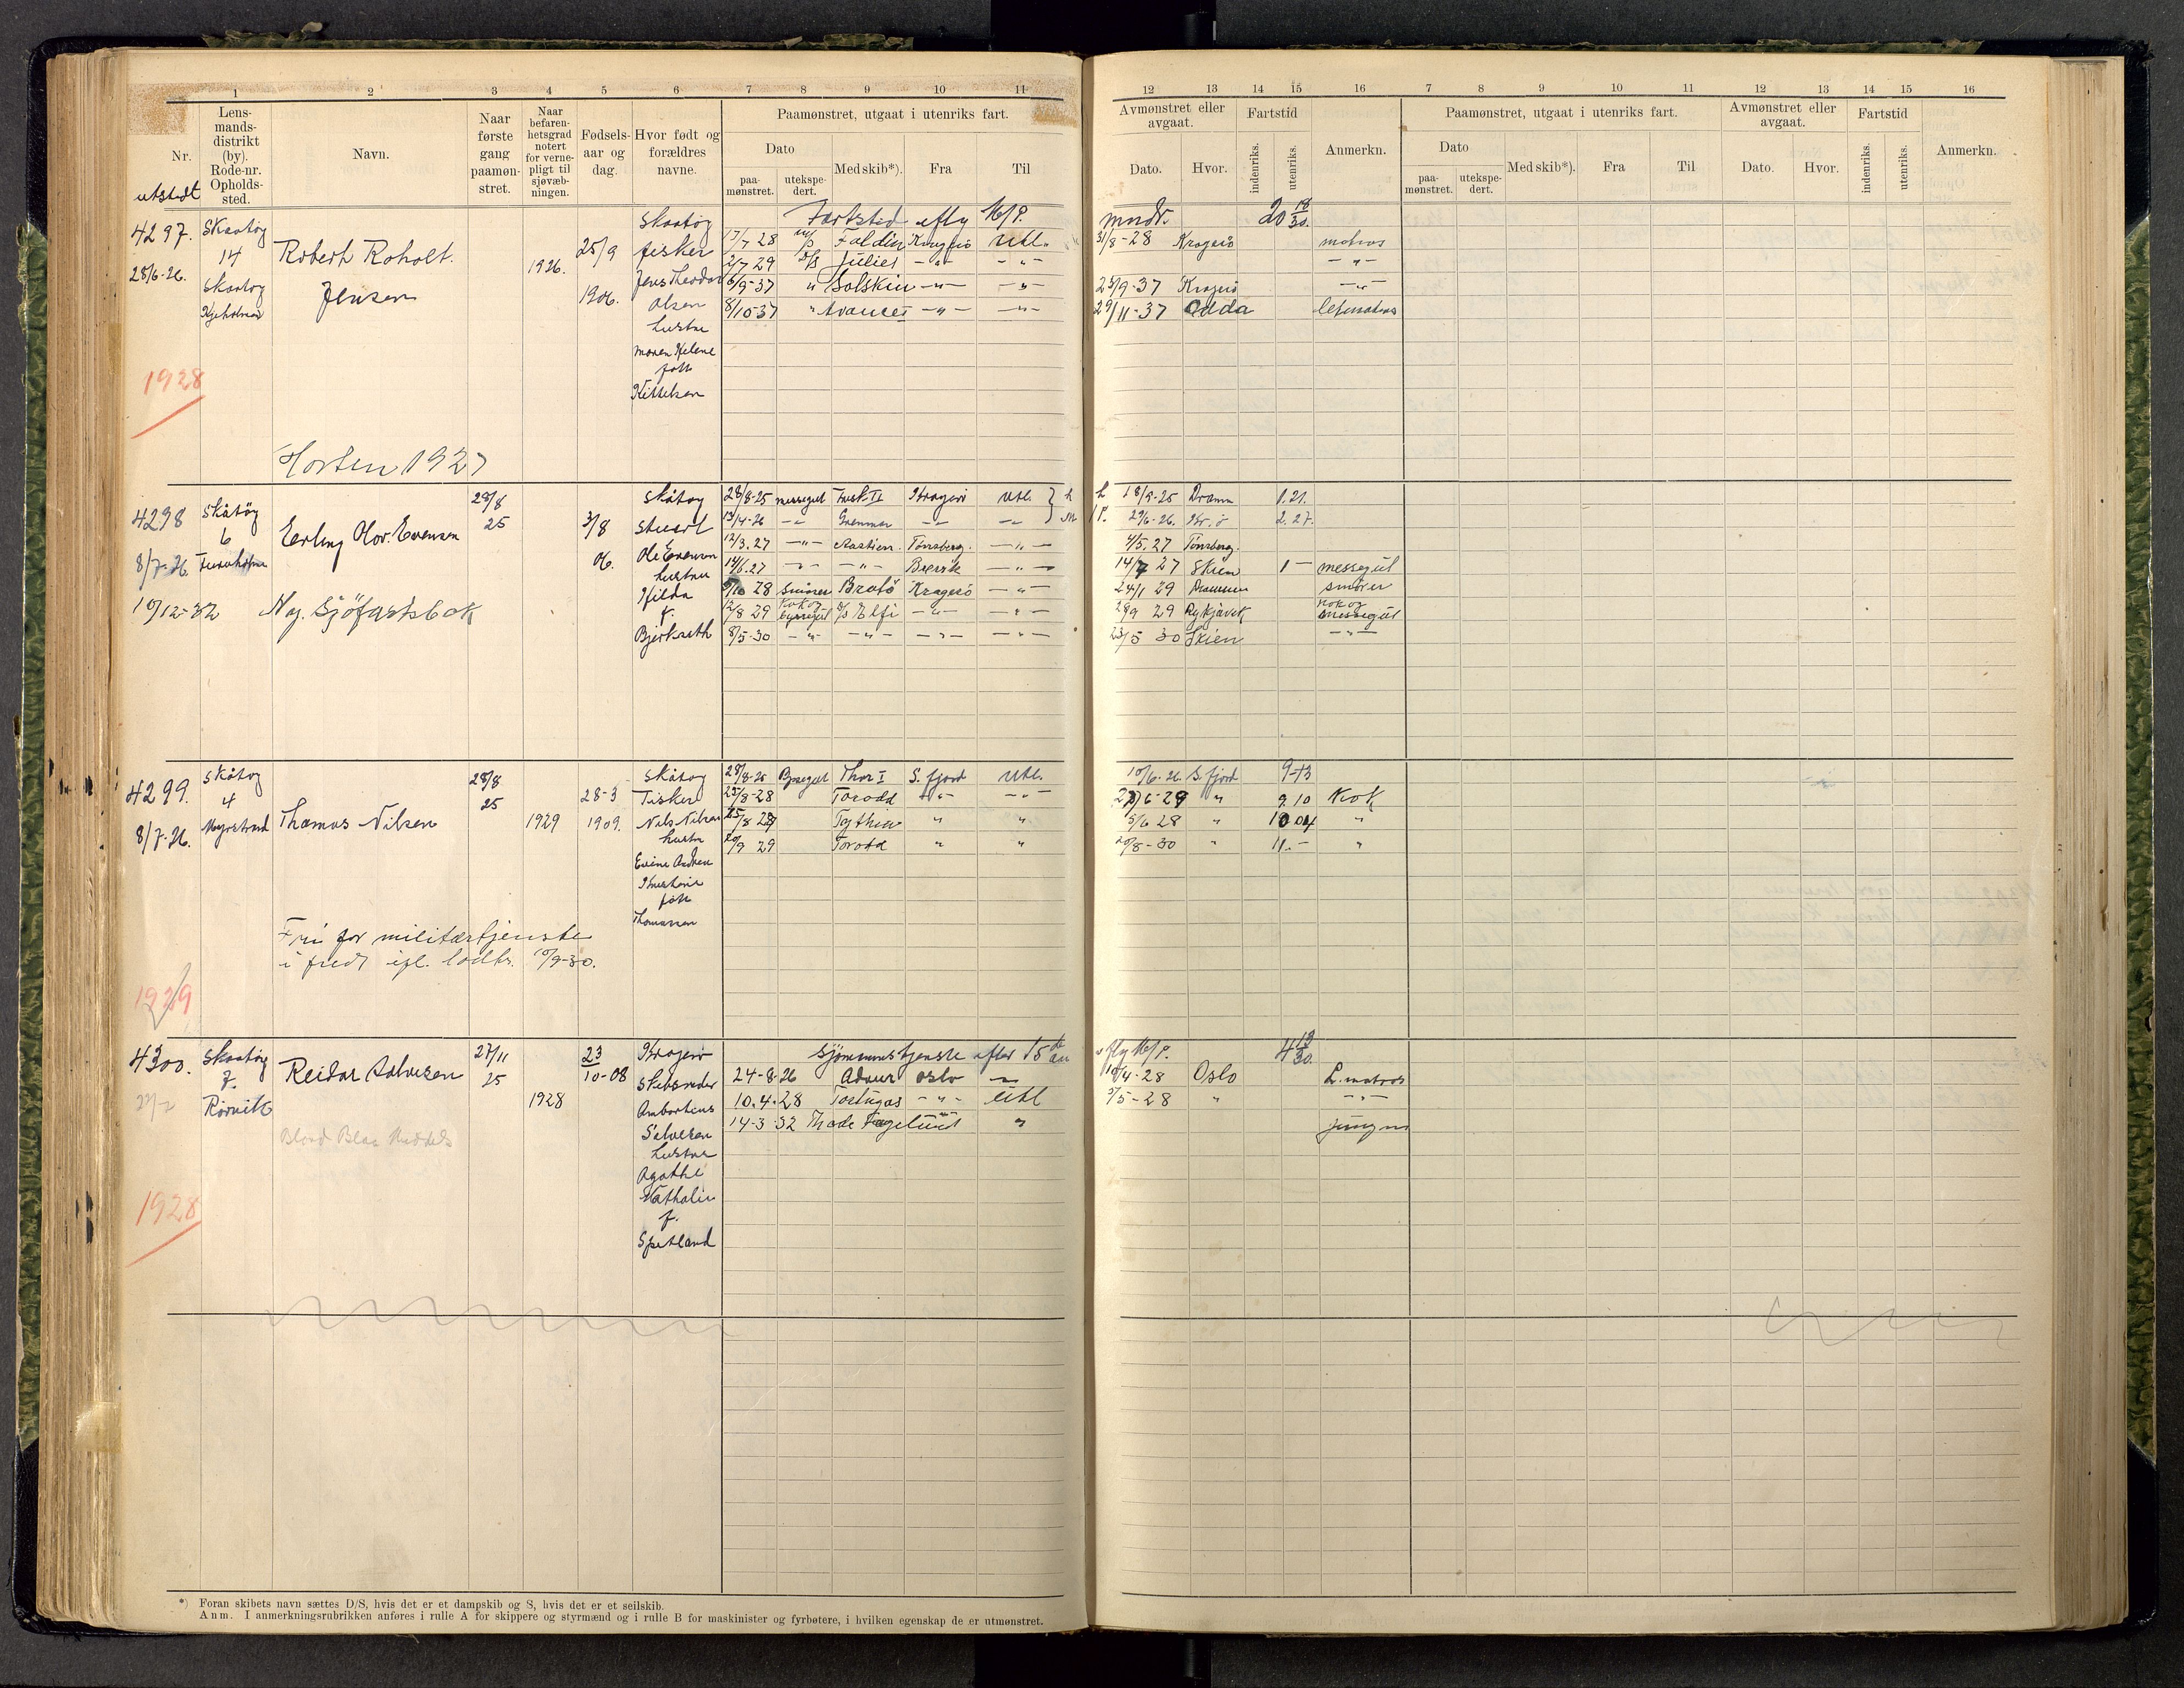 1 2 3 4 5 6 7 8 9 10 11
Nr.
utstedt
Lens-
mands-
distrikt
(by).
Rode-nr.
Opholds-
sted.
Navn.
Naar
første
gang
paamøn-
stret.
Naar
befaren-
hetsgrad
notert
for verne-
pligt til
sjøvæb-
ningen.
Fødsels-
aar og
dag.
Hvor født og
forældres
navne.
Paamønstret, utgaat i utenriks fart.
Dato
paa-
mønstret.
utekspe-
dert.
Med skib*).
Fra
Til
12 13 14 15 16 7 8 9 10 11 12 13 14 15 16
Avmønstret eller
avgaat.
Dato.
Hvor.
Fartstid
indenriks.
utenriks.
Anmerkn.
Paamønstret, utgaat i utenriks fart.
Dato
paa-
mønstret.
utekspe-
dert.
Med skib*).
Fra
Til
Avmønstret eller
avgaat.
Dato.
Hvor.
Fartstid
indenriks.
utenriks.
Anmerkn.
4297.
28/6-26.
1928
Skaatøy
14
Skaatøy
Robert Roholt
Jensen
1926.
25/9
1906.
Skaatøy
fisker
Jens Theodor
Olsen
hustru
Maren Helene
født
Kittelsen
Fartstid M/P.
17/7 28 m/s Faldin Kragerø utl.
2/7 29 Juliet -"- -"-
6/9-37 " Solskin -"- -"-
8/10-37 " Avance I -"- -"-
mndr. 20 18/30.
31/8-28 Kragerø matros
-"-
25/9-37 Kragerø -"-
29/11-37 Odda letmatros
Horten 1927
4298
8/7-26.
Skåtøy
6
Erling Olov. Evensen
28/8
25
3/8
06.
Skåtøy
Stuert
Ole Evensen
hustru
Hilda
f.
Bjerkseth
10/12-32 Ny. Sjöfartsbok
28/8-25 messegut Fusk. II Kragerø utl.
13/4-26 -"- Grenmar -"- -"-
12/3.27 -"- Tønsberg. -"-
14/6.27 -"- -"- Brevik -"-
28 Bratø Kragerø -"-
12/8 29 Kok og byssegut Elfi -"- -"-
8/5-30 -"- -"- -"- -"-
18/9-25 Dramm 1.21.
29/6-26. Kr.ø 2.27.
4/5.27 Tønsberg.
14/7 27 Skien 1 - messegut
24/1 29 Drammen smører
28/9 29 Reykjavik kok og messegut
23/5 30 Skien -"-
4299.
8/7-26.
1929
Skåtøy
4
Myrstrand
Thomas Nilsen
28/8
25
1929
28-3
1909.
Skåtøy
Fisker
Nils Nilsen
hustru
født
Thomassen
28/8-25 Byssegut Thor I S. fjord utl.
25/8-28 Torodd -"- -"-
25/8 Tythia " "
20/9 29 Torodd " "
10/6-26. S. fjord 9-13
6-29 " 9.10 Kok
5/6 28 " 10 04 "
20/8-30 " 11.- "
Fri for militærtjeneste
i fred ifl. 10/9-30.
4300.
1928
Skaatøy
7.
Rørvik
Reidar Salvesen
27/11
25
1928
23
10-08
Kragerø
Skibsreder
Ambortius
Salvesen
hustru
Agathe
Nathalie
f.
Spetland
sjømannstjeneste efter 15de
24-8-26 Oslo
10.4-28 Tortugas -"- utl
14-3-32 Thode Fagelund "
M/P. 4 13/30.
10/4-28 Oslo L. matros
3/5-28 " -"-
jungm
*) Foran skibets navn sættes D/S, hvis det er et dampskib og S, hvis det er et seilskib.
Anm. I anmerkningsrubrikken anføres i rulle A for skippere og styrmænd og i rulle B for maskinister og fyrbøtere, i hvilken egenskap de er utmønstret.